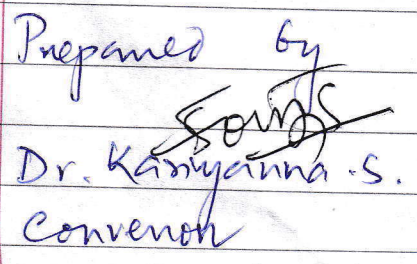 Prepared by
Dr. Kariyanna .S.
Convenor